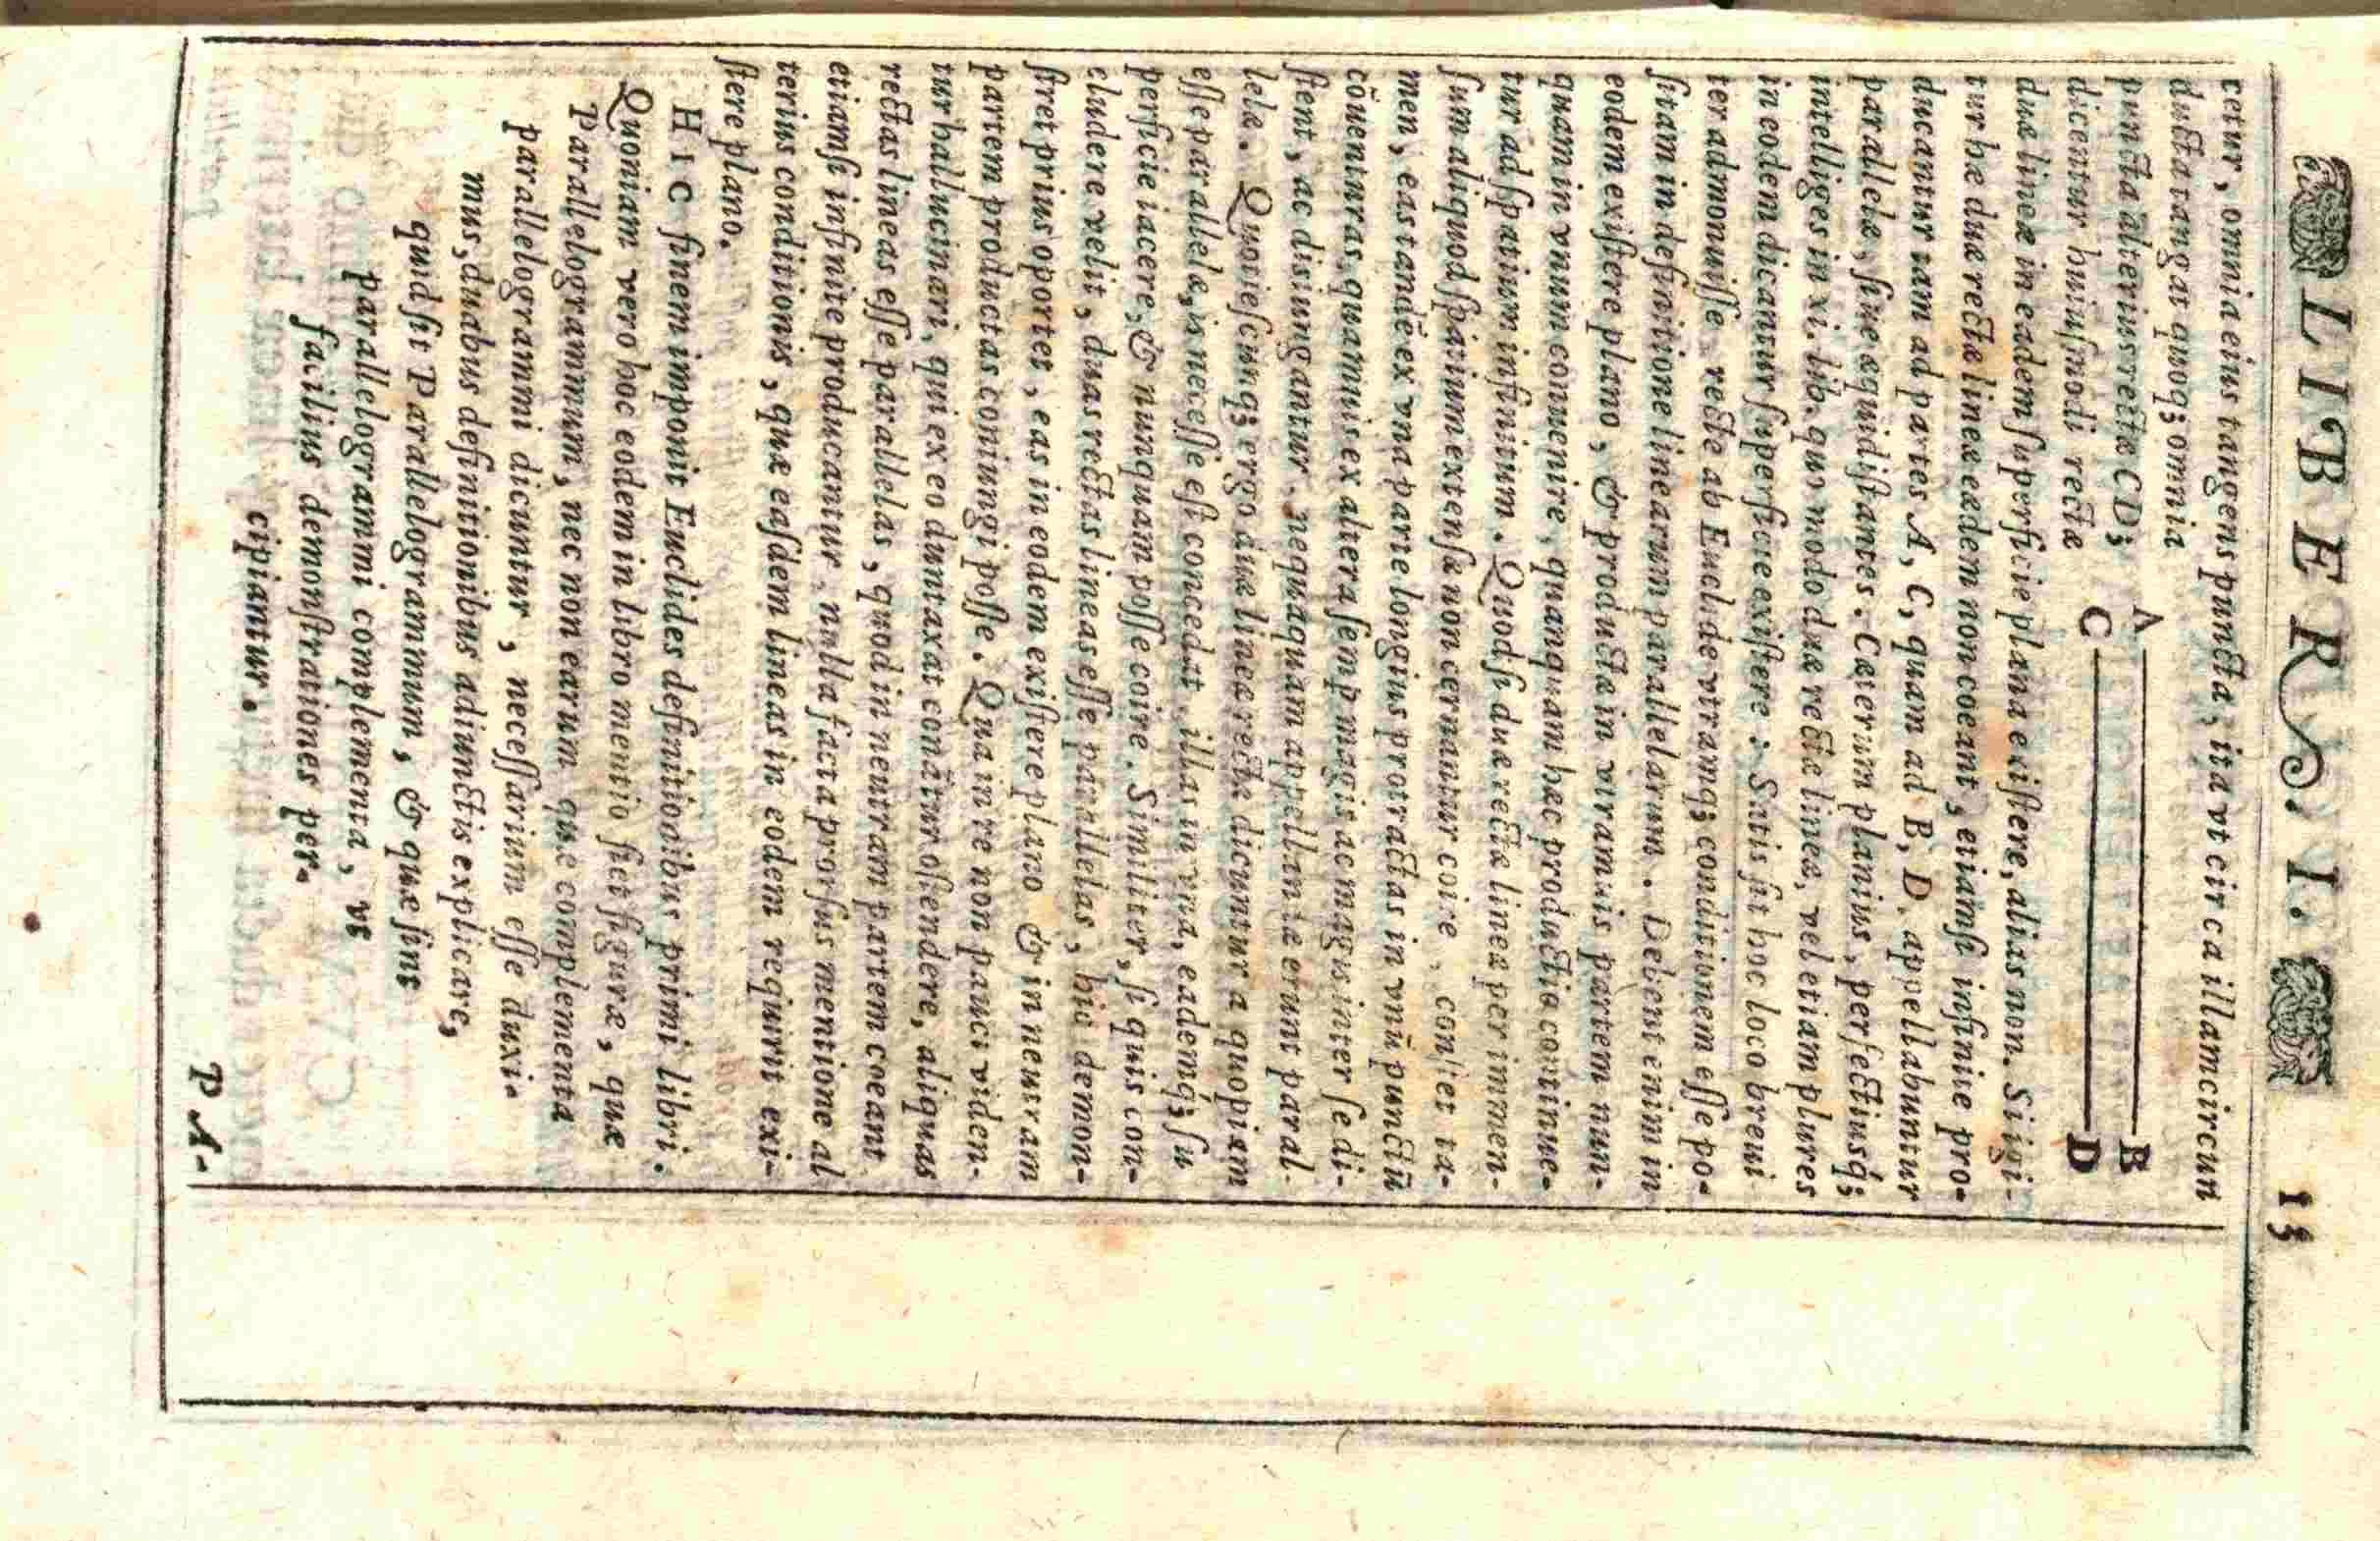 LIBER. I. 13
cetur, omnia eius tangens puncta, ita vt circa illam circun
ducta tangat quoq; omnia
puncta alterius rectæ CD;
dicentur huiuſmodi rectæ
A B
C D
duæ lineæ in eadem ſuperficie plana exiſtere, alias non. Si igi-
tur hæ duæ rectæ lineæ eædem non coeant, etiamſi infinite pro-
ducantur tam ad partes A, C, quam ad B, D, appellabuntur
parallelæ, ſiue æquidiſtantes. Cæterum planius, perfectiusq́;
intelliges in xi. lib. quo modo duæ rectæ lineæ, vel etiam plures
in eodem dicantur ſuperficie exiſtere: Satis ſit hoc loco breui
ter admonuiſſe, recte ab Euclide vtramq; conditionem eſſe po-
ſitam in definitione linearum parallelarum. Debent enim in
eodem exiſtere plano, & productæ in vtramuis partem nun-
quam in vnum conuenire, quanquam hæc productio continue-
tur ad ſpatium infinitum. Quodſi duæ rectæ lineæ per immen-
ſum aliquod ſpatium extenſæ non cernantur coire, conſtet ta-
men, eas tandē ex vna parte longius protractas in vnū punctū
cōuenturas, quamuis ex altera ſemp magis ac magis inter ſe di-
ſtent, ac disiungantur, nequaquam appellandæ erunt paral-
lelæ. Quotieſcunq; ergo duæ lineæ rectæ dicuntur a quopiam
eſſe parallelæ, is neceſſe eſt concedat, illas in vna, eademq́; ſu
perficie iacere, & nunquam poſſe coire. Similiter, ſi quis con-
cludere velit, duas rectas lineas eſſe parallelas, his demon-
ſtret prius oportet, eas in eodem exiſtere plano & in neutram
partem productas coniungi poſſe. Qua in re non pauci viden-
tur hallucinari, qui ex eo duntaxat conātur oſtendere, aliquas
rectas lineas eſſe parallelas, quod in neutram partem coeant
etiamſi infinite producantur, nulla facta prorſus mentione al
terius conditionis, quæ eaſdem lineas in eodem requirit exi-
ſtere plano.
HIC finem imponit Euclides definitiodibus primi libri.
Quoniam vero hoc eodem in libro mentio fiet figuræ, quæ
Parallelogrammum, nec non earum quæ complementa
parallelogrammi dicuntur, neceſſarium eſſe duxi-
mus, duabus definitionibus adiunctis explicare,
quid ſit Parallelogrammum, & quæ ſint
parallelogrammi complementa, vt
facilius demonſtrationes per-
cipiantur.
PA-